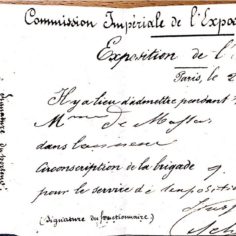 Commission Impériale de l'Expo
Exposition de l'
Paris, le 2
Il y a lieu d'admettre pendant
M de Massas
dans
Circonscription de la brigade 9
pour le service de l'expositi
(Signature du fonctionnaire)
Signature du porteur